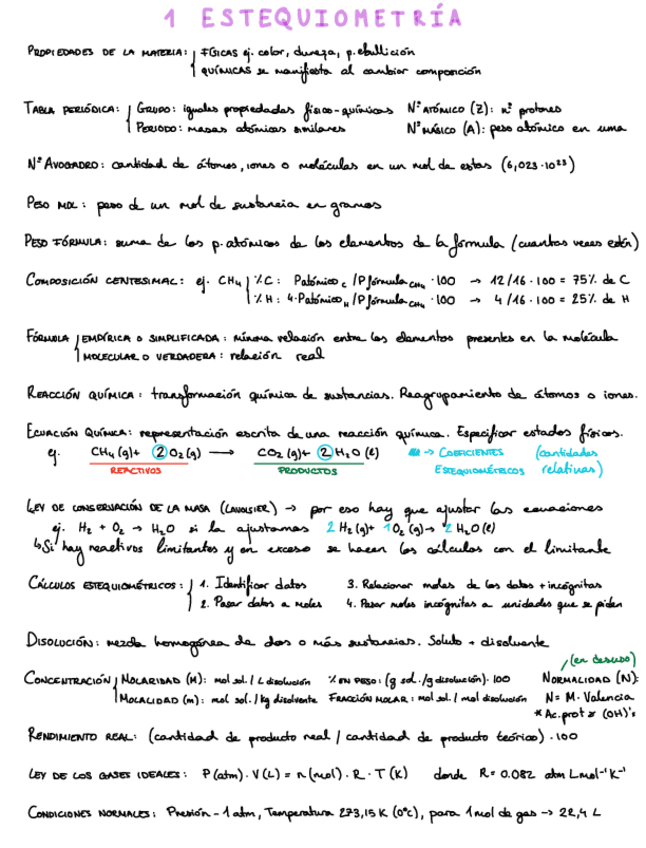 1 ESTEQUIOMETRÍA
PROPIEDADES DE LA MATERIA: FÍSICAS ej. color, dureza, p. ebullición
QUÍMICAS se manifiesta al cambiar composición
TABLA PERIÓDICA: GRUPO: iguales propiedades físico-químicas Nº ATÓMICO (Z): nº protones
PERIODO: masas atómicas similares Nº MÁSICO (A): peso atómico en uma
Nº AVOGADRO: cantidad de átomos, iones o moléculas en un mol de estas (6,023·10²³)
PESO MOL: peso de un mol de sustancia en gramos
PESO FÓRMULA: suma de los p. atómicos de los elementos de la fórmula (cuantas veces estén)
COMPOSICIÓN CENTESIMAL: ej. CH₄ %C: Patómico C / Pfórmula CH₄ · 100 → 12/16 · 100 = 75% de C
%H: 4·Patómico H / Pfórmula CH₄ · 100 → 4/16 · 100 = 25% de H
FÓRMULA EMPÍRICA O SIMPLIFICADA: mínima relación entre los elementos presentes en la molécula
MOLECULAR O VERDADERA: relación real
REACCIÓN QUÍMICA: transformación química de sustancias. Reagrupamiento de átomos o iones.
ECUACIÓN QUÍMICA: representación escrita de una reacción química. Especificar estados físicos.
ej. CH₄ (g) + 2 O₂ (g) → CO₂ (g) + 2 H₂O (l) → COEFICIENTES (cantidades
REACTIVOS PRODUCTOS ESTEQUIOMÉTRICOS relativas)
LEY DE CONSERVACIÓN DE LA MASA (LAVOISIER) → por eso hay que ajustar las ecuaciones
ej. H₂ + O₂ → H₂O si la ajustamos 2 H₂ (g) + 1 O₂ (g) → 2 H₂O (l)
↳ Si hay reactivos limitantes y en exceso se hacen los cálculos con el limitante
CÁLCULOS ESTEQUIOMÉTRICOS: 1. Identificar datos 3. Relacionar moles de los datos + incógnitas
2. Pasar datos a moles 4. Pasar moles incógnitas a unidades que se piden
DISOLUCIÓN: mezcla homogénea de dos o más sustancias. Soluto + disolvente
(en desuso)
CONCENTRACIÓN MOLARIDAD (M): mol sol. / L disolución % EN PESO: (g sol. /g disolución)· 100 NORMALIDAD (N):
MOLALIDAD (m): mol sol. / kg disolvente FRACCIÓN MOLAR: mol sol. / mol disolución N = M · Valencia
* Ac. prot * (OH)'s
RENDIMIENTO REAL: (cantidad de producto real / cantidad de producto teórico) · 100
LEY DE LOS GASES IDEALES: P (atm) · V (L) = n (mol) · R · T (K) donde R = 0.082 atm L mol⁻¹ K⁻¹
CONDICIONES NORMALES: Presión - 1 atm, Temperatura 273,15 K (0ºC), para 1 mol de gas → 22,4 L